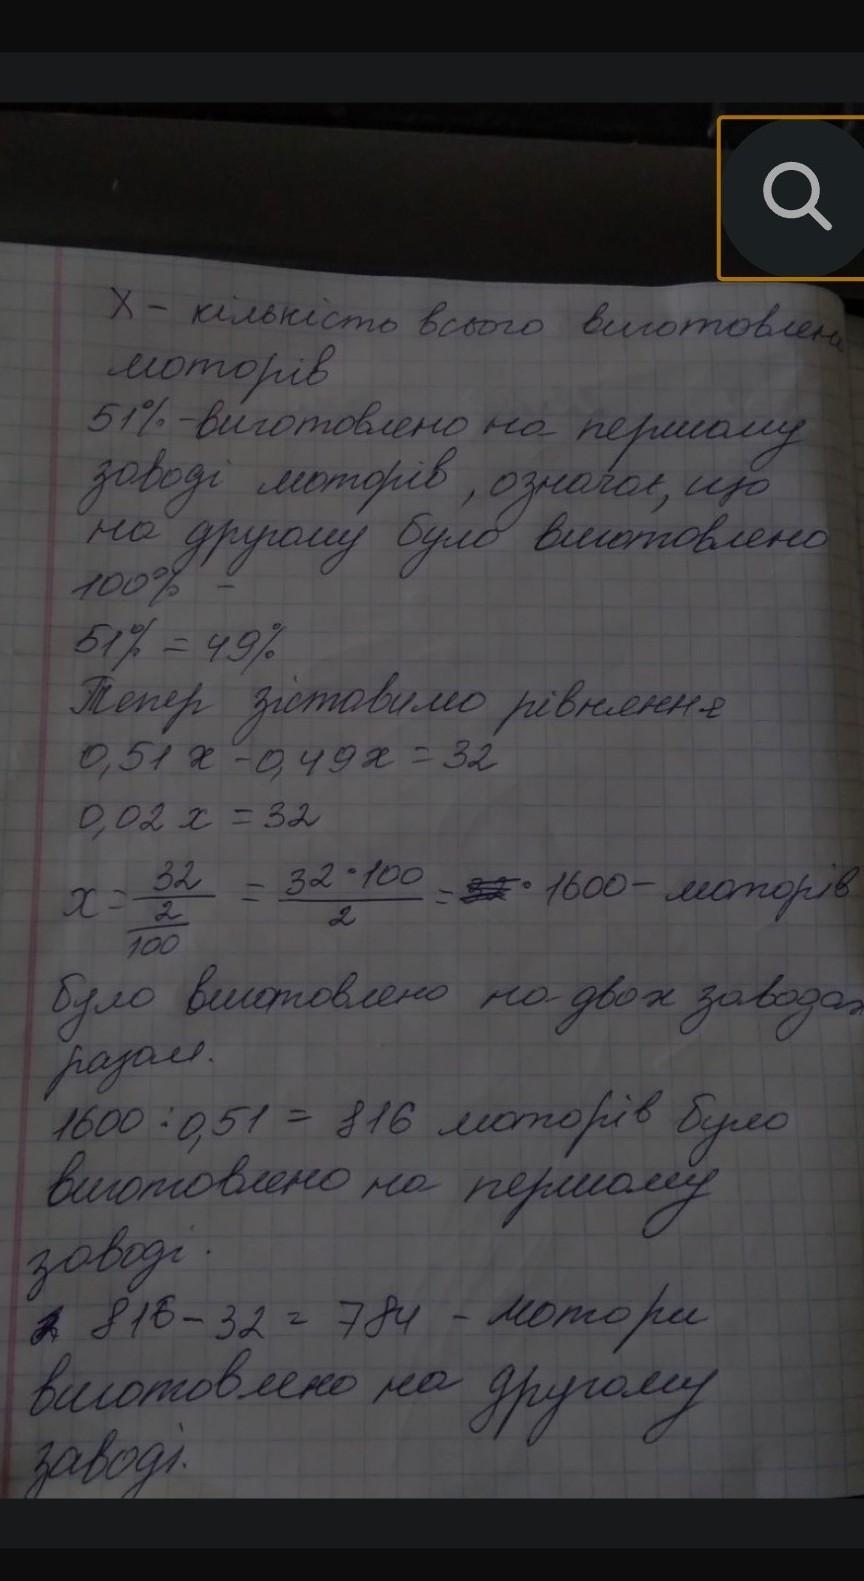 X – кількість всього виготовлени
моторів
51% – виготовлено на першому
заводі моторів, означає, що
на другому було виготовлено
100% –
51% = 49%
Тепер зіставимо рівняння
0,51x – 0,49x = 32
0,02x = 32
x = 32/(2/100) = (32·100)/2 = · 1600 – моторів
було виготовлено на двох заводах
разом.
1600 : 0,51 = 816 моторів було
виготовлено на першому
заводі.
816 – 32 = 784 – мотори
виготовлено на другому
заводі.